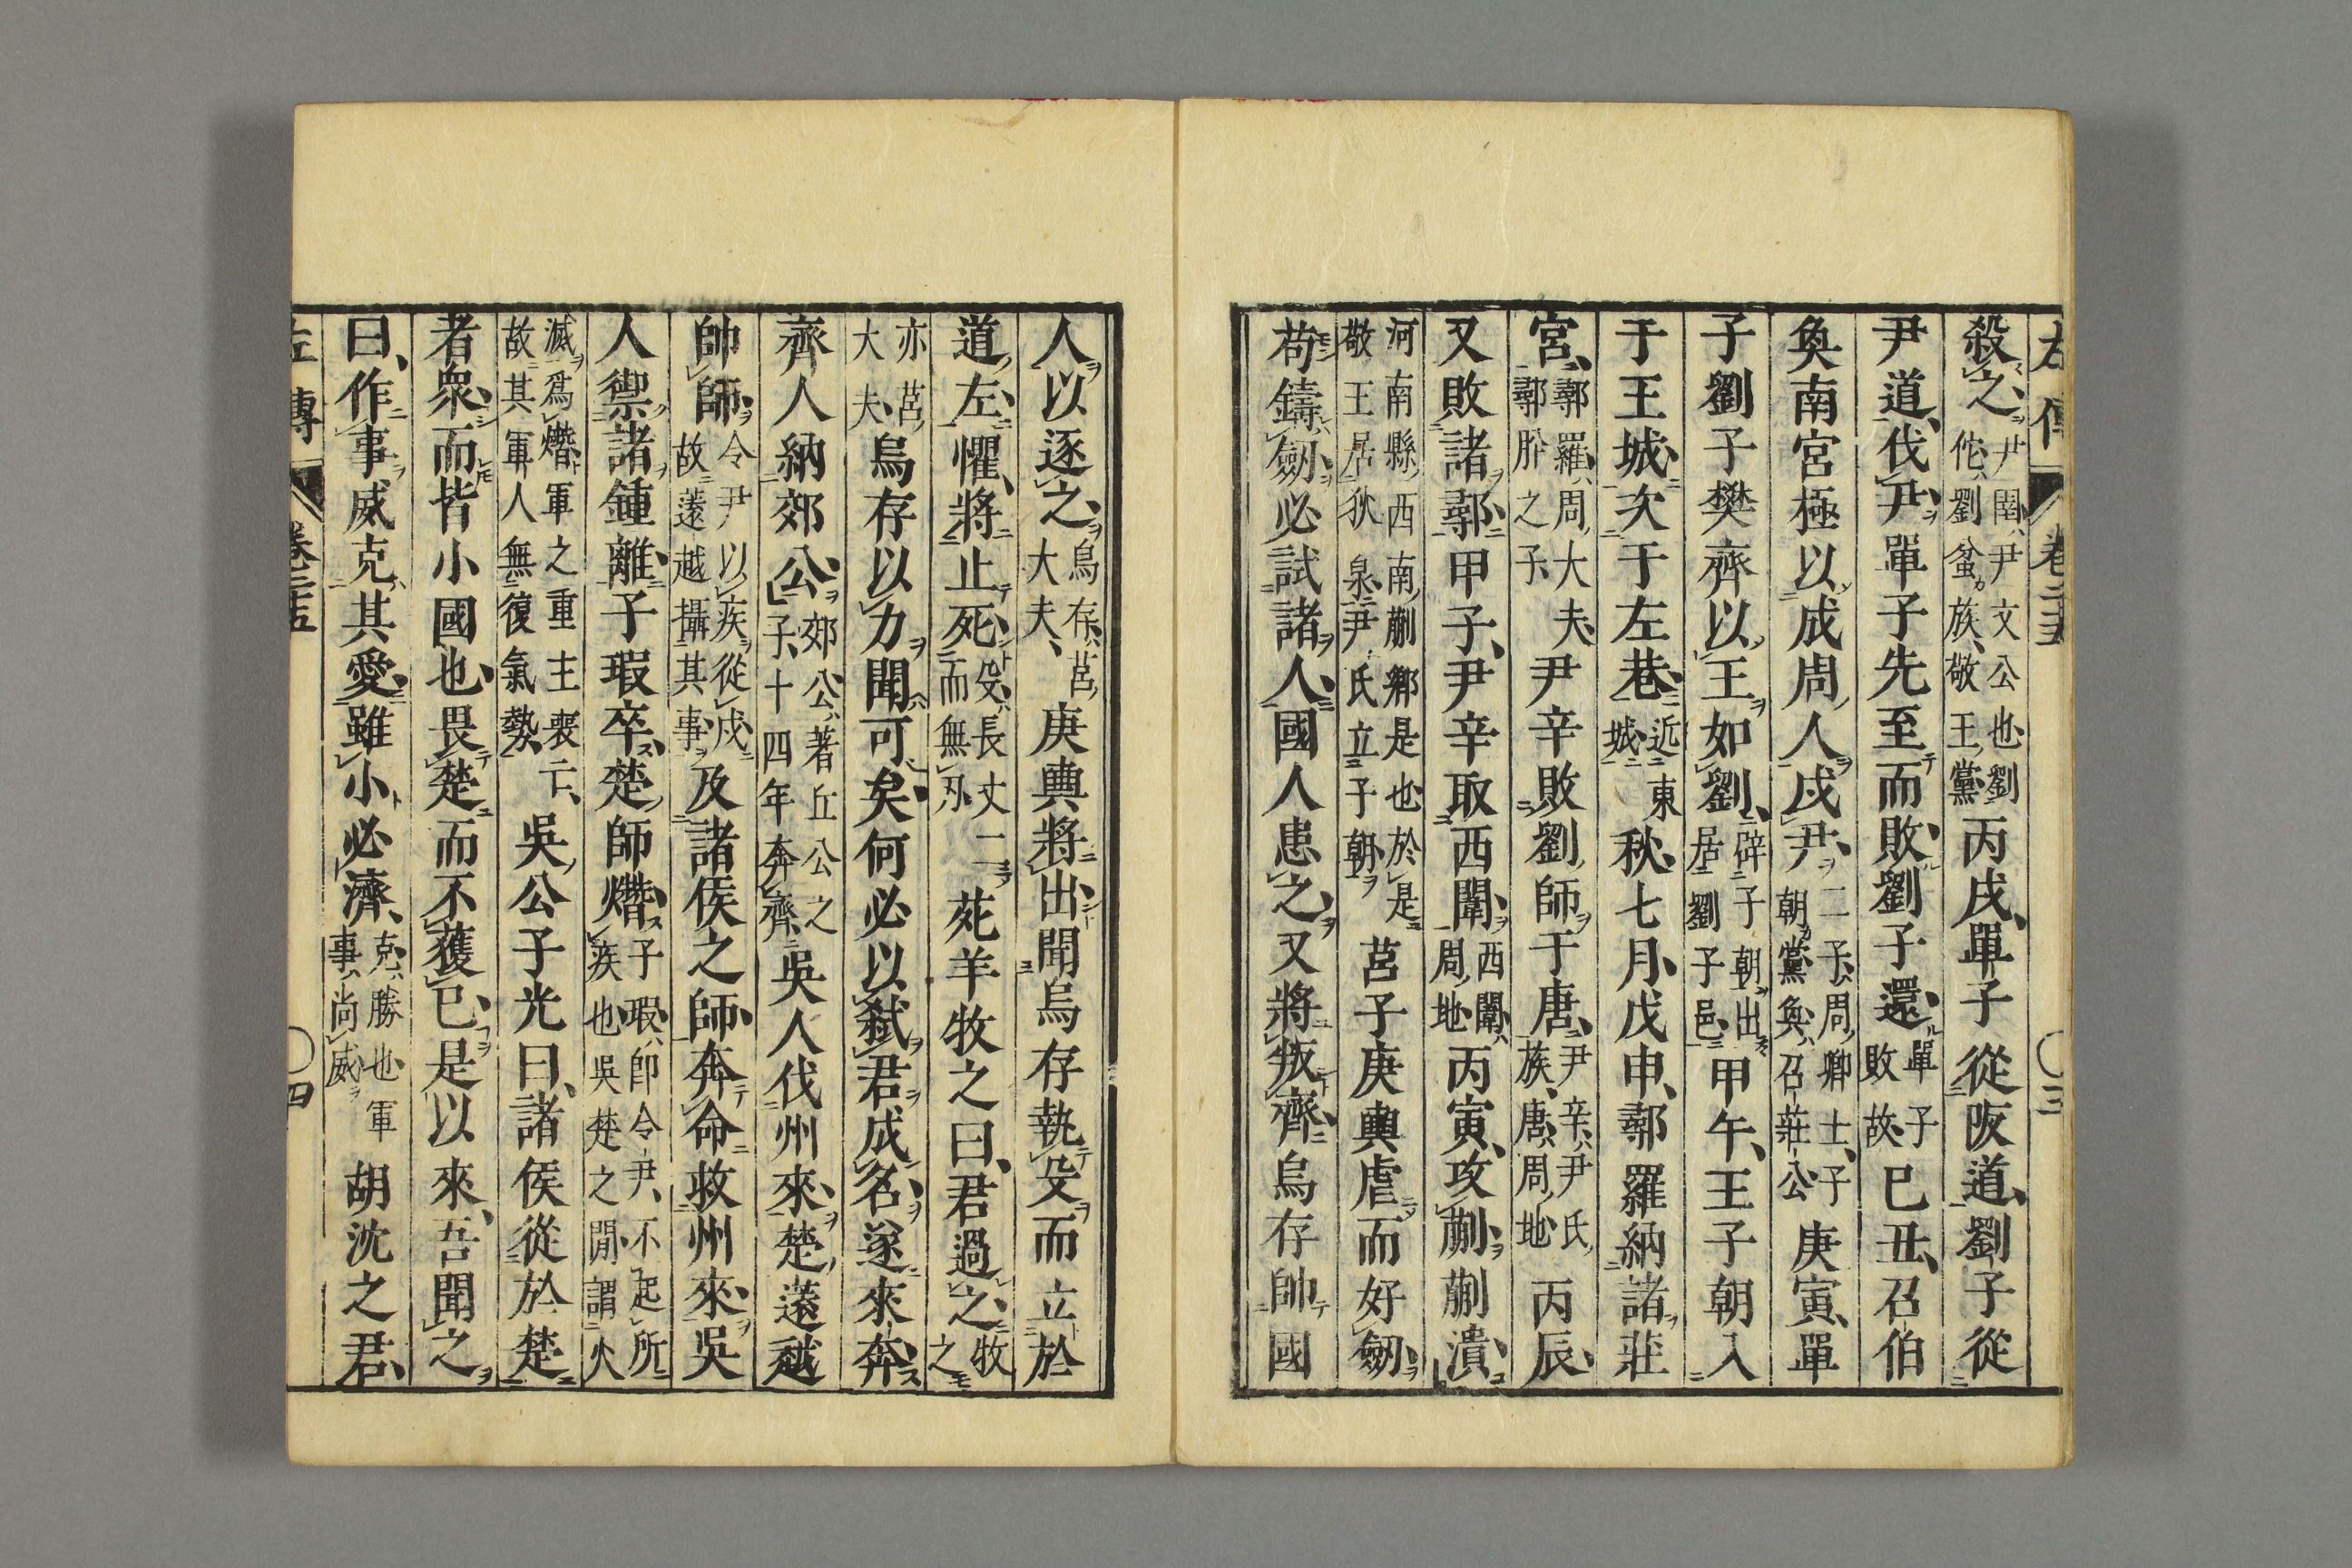 左傳 卷二十五 〇三
殺之尹圉尹文公也劉佗劉蚠族敬王黨丙戌單子從阪道劉子從
尹道伐尹單子先至而敗劉子還單子敗故己丑召伯
奐南宮極以成周人戍尹二子周卿士子朝黨奐召莊公庚寅單
子劉子樊齊以王如劉辟子朝出居劉子邑甲午王子朝入
于王城次于左巷近東城秋七月戊申鄩羅納諸莊
宮鄩羅周大夫鄩肸之子尹辛敗劉師于唐尹辛尹氏族唐周地丙辰
又敗諸鄩甲子尹辛取西闈西闈周地丙寅攻蒯蒯潰
河南縣西南蒯鄉是也於是敬王居狄泉尹氏立子朝莒子庚輿虐而好劒
苟鑄劒必試諸人國人患之又將叛齊烏存帥國
人以逐之烏存莒大夫庚輿將出聞烏存執殳而立於
道左懼將止死殳長丈二而無刃苑羊牧之曰君過之牧之
亦莒大夫烏存以力聞可矣何必以弒君成名遂來奔
齊人納郊公郊公著丘公之子十四年奔齊吳人伐州來楚薳越
帥師令尹以疾從戎故薳越攝其事及諸侯之師奔命救州來吳
人禦諸鍾離子瑕卒楚師熸子瑕即令尹不起所疾也吳楚之閒謂火
滅爲熸軍之重主喪亡故其軍人無復氣勢吳公子光曰諸侯從於楚
者衆而皆小國也畏楚而不獲已是以來吾聞之
曰作事威克其愛雖小必濟克勝也軍事尚威胡沈之君
左傳 卷二十五 〇四